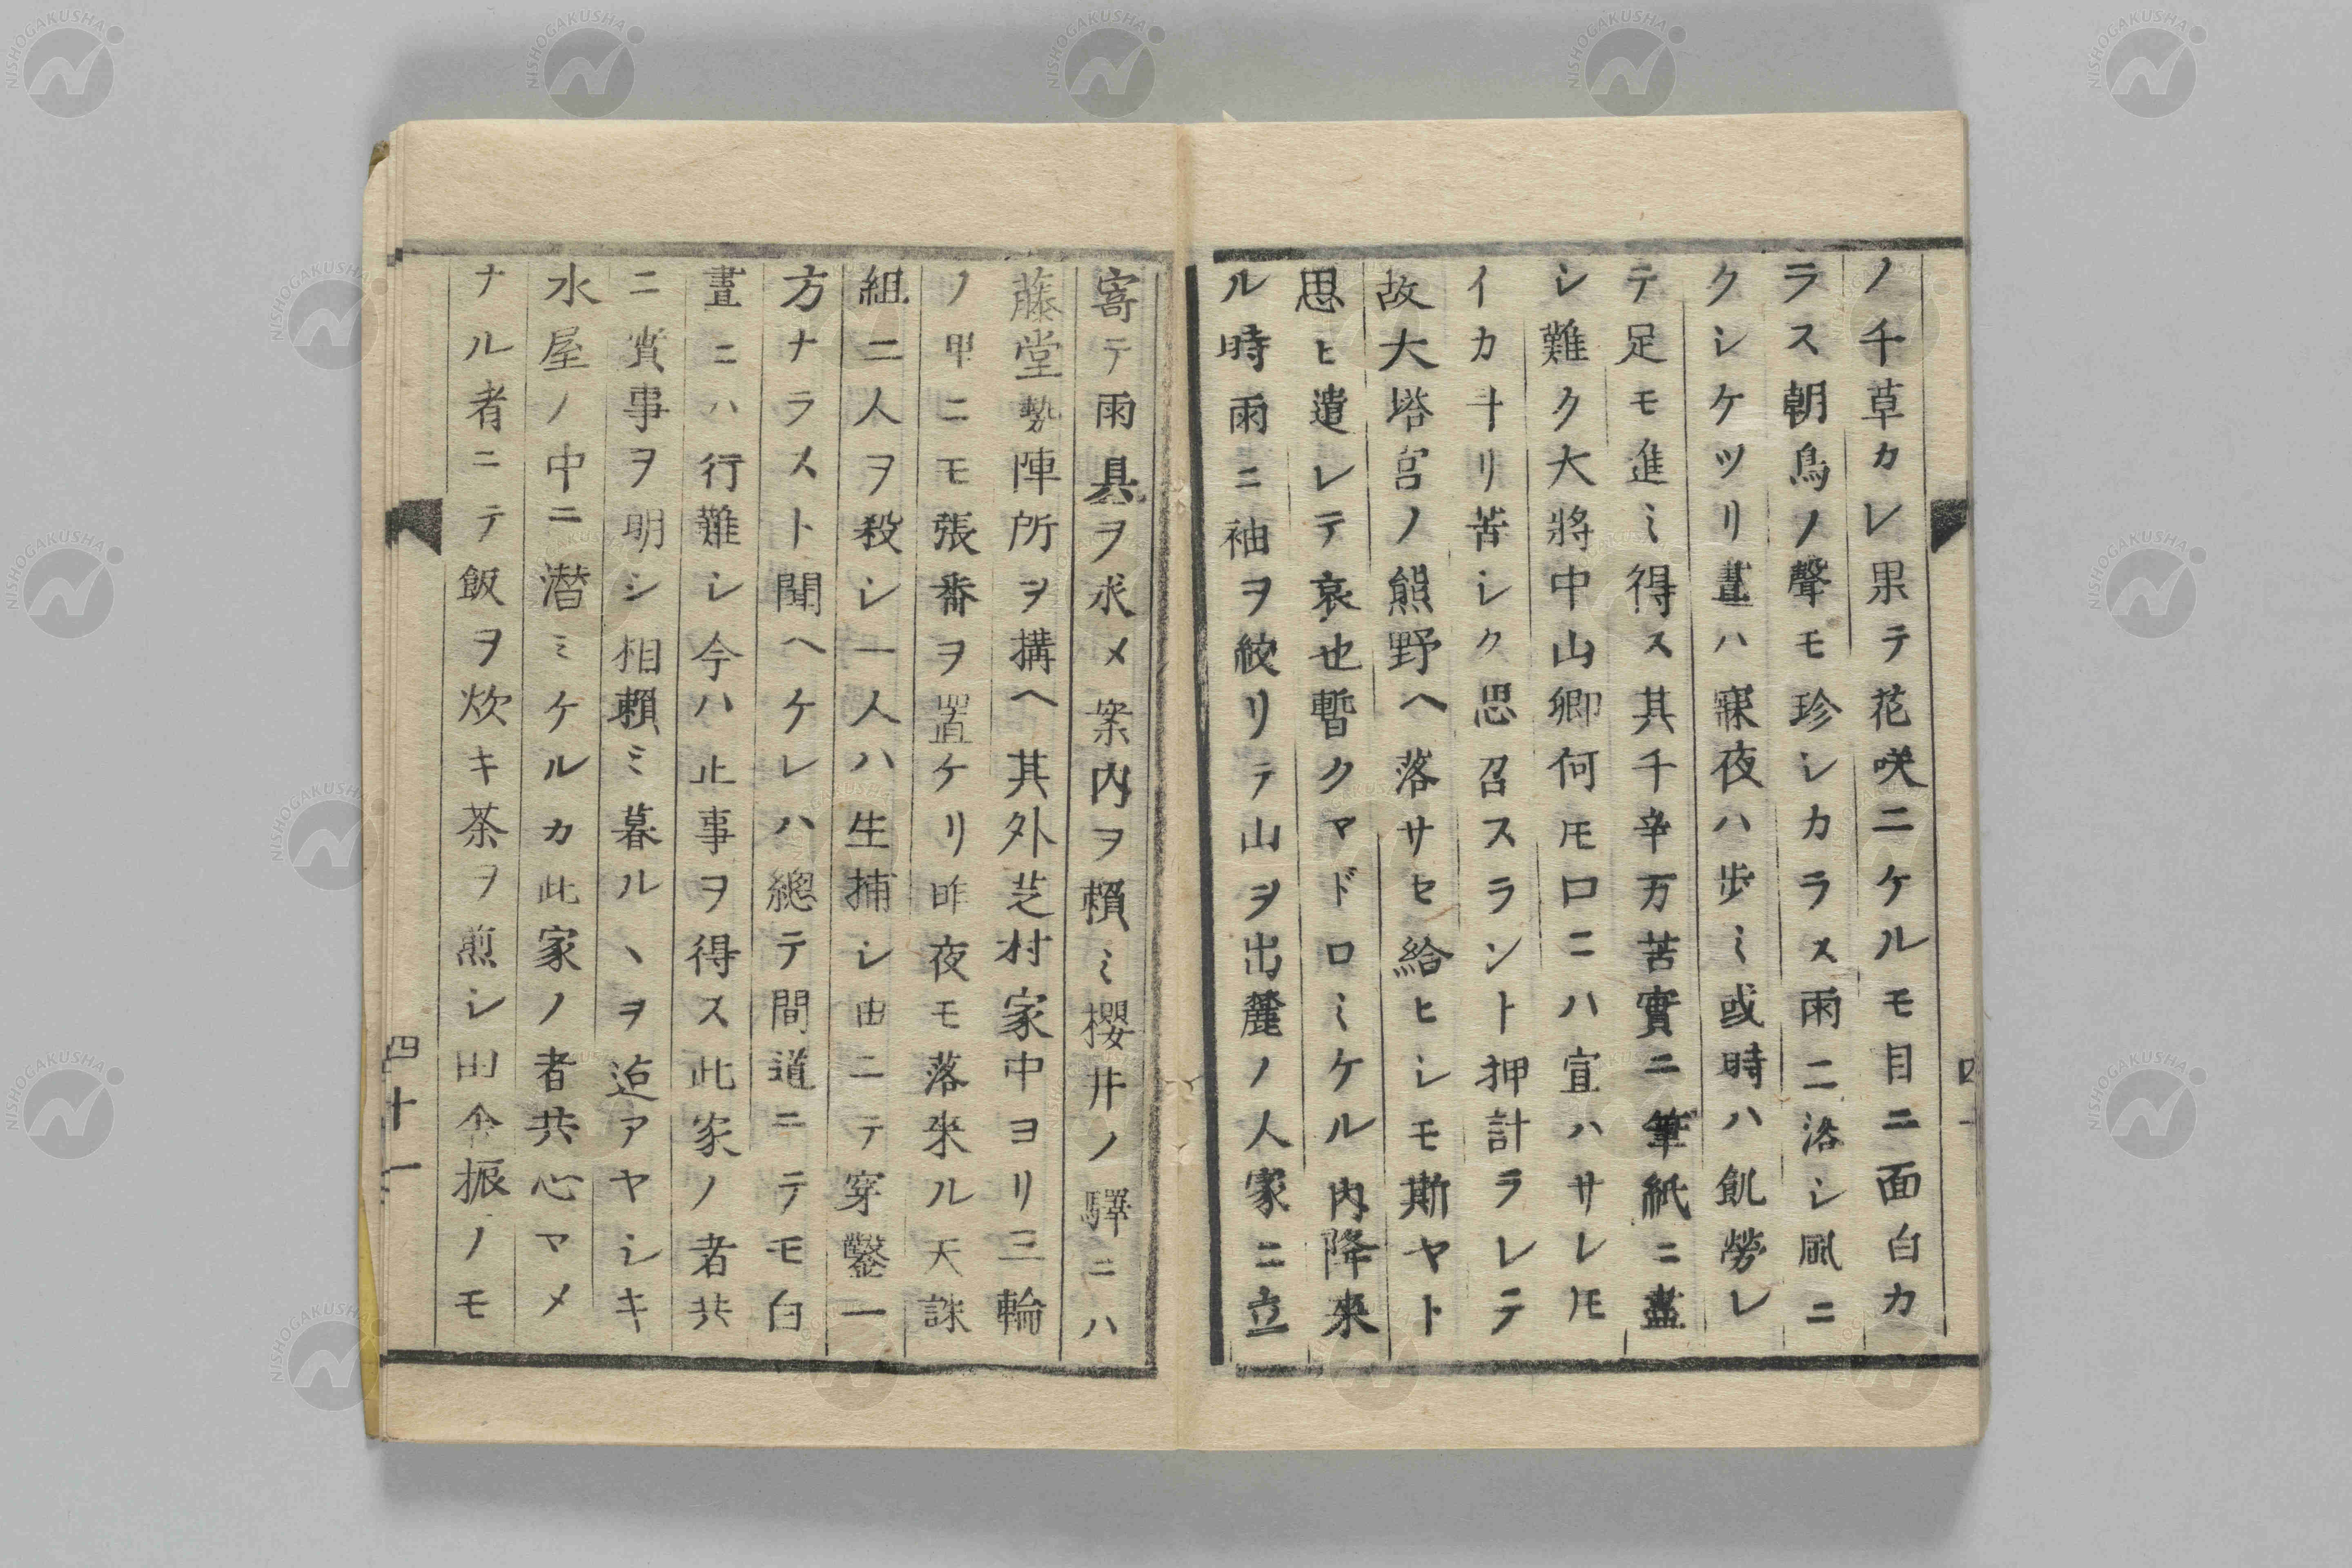 ノ千草カレ果テ花咲ニケルモ目ニ面白カ
ラス朝鳥ノ聲モ珍シカラス雨ニ浴シ風ニ
クシケツリ晝ハ寐夜ハ歩ミ或時ハ飢勞レ
テ足モ進ミ得ス其千辛万苦實ニ筆紙ニ盡
シ難ク大將中山卿何𪜈口ニハ宣ハサレ𪜈
イカ斗リ苦シク思召スラント押計ラレテ
故大塔宮ノ熊野ヘ落サセ給ヒシモ斯ヤト
思ヒ遣レテ哀也暫クマドロミケル内降來
ル時雨ニ袖ヲ絞リテ山ヲ出麓ノ人家ニ立
寄テ雨具ヲ求メ案内ヲ頼ミ櫻井ノ驛ニハ
藤堂勢陣所ヲ搆ヘ其外芝村家中ヨリ三輪
ノ甲ニモ張番ヲ置ケリ昨夜モ落來ル天誅
組二人ヲ殺シ一人ハ生捕シ由ニテ穿鑿一
方ナラスト聞ヘケレハ總テ間道ニテモ白
晝ニハ行難シ今ハ止事ヲ得ス此家ノ者共
ニ實事ヲ明シ相頼ミ暮ルヽヲ迨アヤシキ
水屋ノ中ニ潜ミケルカ此家ノ者共心マメ
ナル者ニテ飯ヲ炊キ茶ヲ煎シ田傘振ノモ
四十一
NISHOGAKUSHA